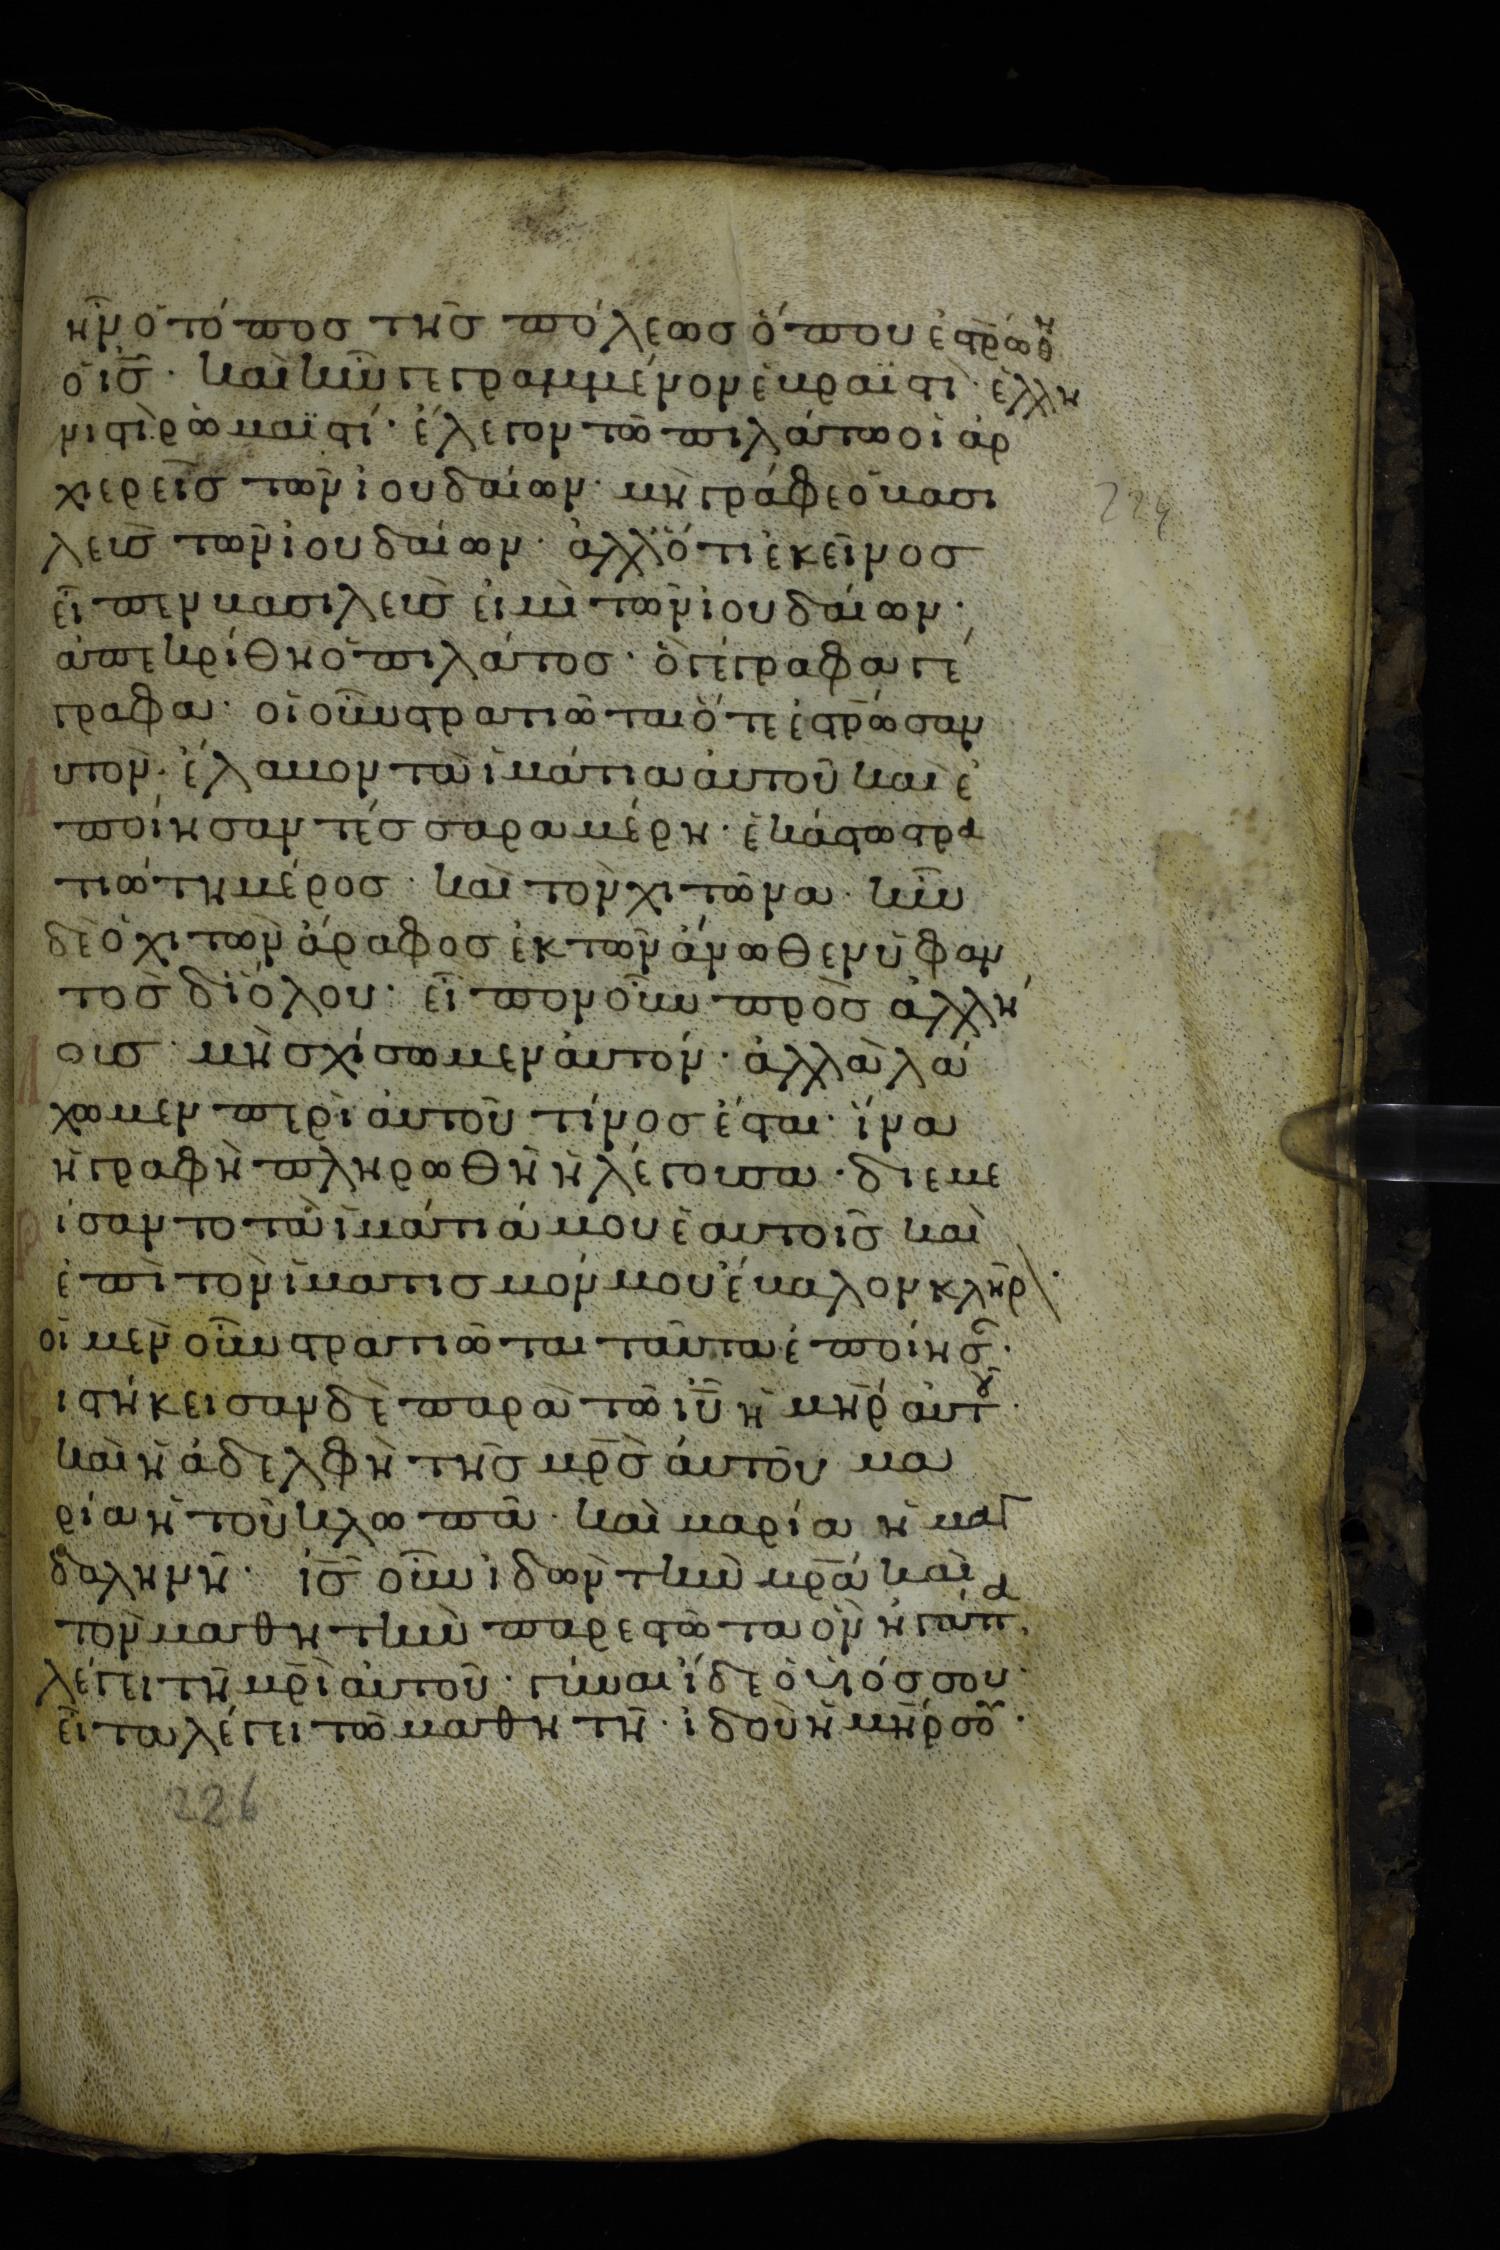 ἦν ὁ τόπος τῆς πόλεως ὅπου ἐστρώθη
ὁ ις̅· καὶ ἦν γεγραμμένον ἑβραϊστὶ· ἑλλη
νιστὶ ῥωμαϊστί· ἔλεγον τῶ πιλάτω οἱ ἀρ
χιερεῖς τῶν ἰουδαίων· μὴ γράφε ὁ βασι
λεὺς τῶν ἰουδαίων· ἀλλ' ὅτι ἐκεῖνος
εἶπεν βασιλεὺς εἰμὶ τῶν ἰουδαίων·
ἀπεκρίθη ὁ πιλάτος· ὃ γέγραφα γέ
γραφα· οἱ οὖν στρατιῶται ὅτε ἐστρώσαν
υτον· ἔλαβον τὰ ἱμάτια αὐτοῦ καὶ ἐ
ποίησαν τέσσαρα μέρη· ἑκάστω στρα
τιώτη μέρος· καὶ τὸν χιτῶνα· ἦν
δὲ ὁ χιτὼν ἄραφος ἐκ τῶν ἄνωθεν ὑφαν
τὸς δι' ὅλου· εἶπον οὖν πρὸς ἀλλή
ους· μὴ σχίσωμεν αὐτόν· ἀλλὰ λά
χωμεν περὶ αὐτοῦ τίνος ἔσται· ἵνα
ἡ γραφὴ πληρωθῆ ἡ λέγουσα· διεμε
ίσαντο τὰ ἱμάτιά μου ἑαυτοῖς καὶ
ἐπὶ τὸν ἱματισμόν μου ἔβαλον κλῆρ\·
οἱ μὲν οὖν στρατιῶται ταῦτα ἐποίησ̅·
ιστήκεισαν δὲ παρὰ τῶ ιυ̅ ἡ μη̅ρ αὐτοῦ·
καὶ ἡ ἀδελφὴ τῆς μρ̅ς αὐτοῦ μα
ρία ἡ τοῦ κλωπᾶ· καὶ μαρία ἡ μαγ
δαληνῆ· ις̅ οὖν ἰδὼν τὴν μρ̅α καὶ
τὸν μαθητὴν παρεστῶτα ὃν ἠγάπα·
λέγει τῆ μρ̅ι αὐτοῦ· γύναι ἴδε ὁ υἱός σου·
εἶτα λέγει τῶ μαθητῆ· ἰδοὺ ἡ μη̅ρ σοῦ·
224
226